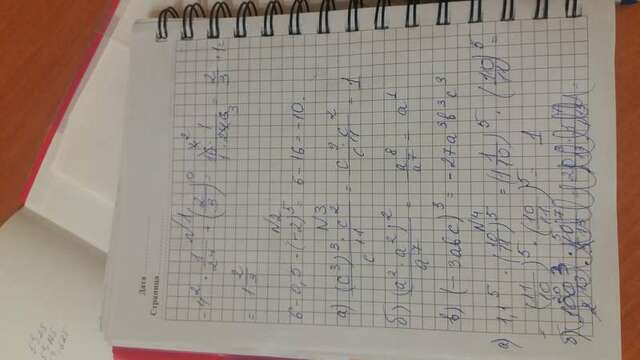 Дата
Страница
№1
- 4² · 1/24 + (2/3)⁰ = 16 · 1 / 1 · 24 = 2/3 + 1 =
= 1 2/3
№2
6 - 0,5 · (-2)⁵ = 6 - 16 = -10.
№3
а) (c³)³ · c² / c¹¹ = c⁹ · c² / c¹¹ = 1
б) (a² · a²)² / a⁷ = a⁸ / a⁷ = a¹
в) (-3abc)³ = -27a³b³c³
№4
а) 1,1⁵ · (10/11)⁵ = (1 1/10)⁵ · (10/11)⁵ =
= (11/10)⁵ · (10/11)⁵ = 1
б)